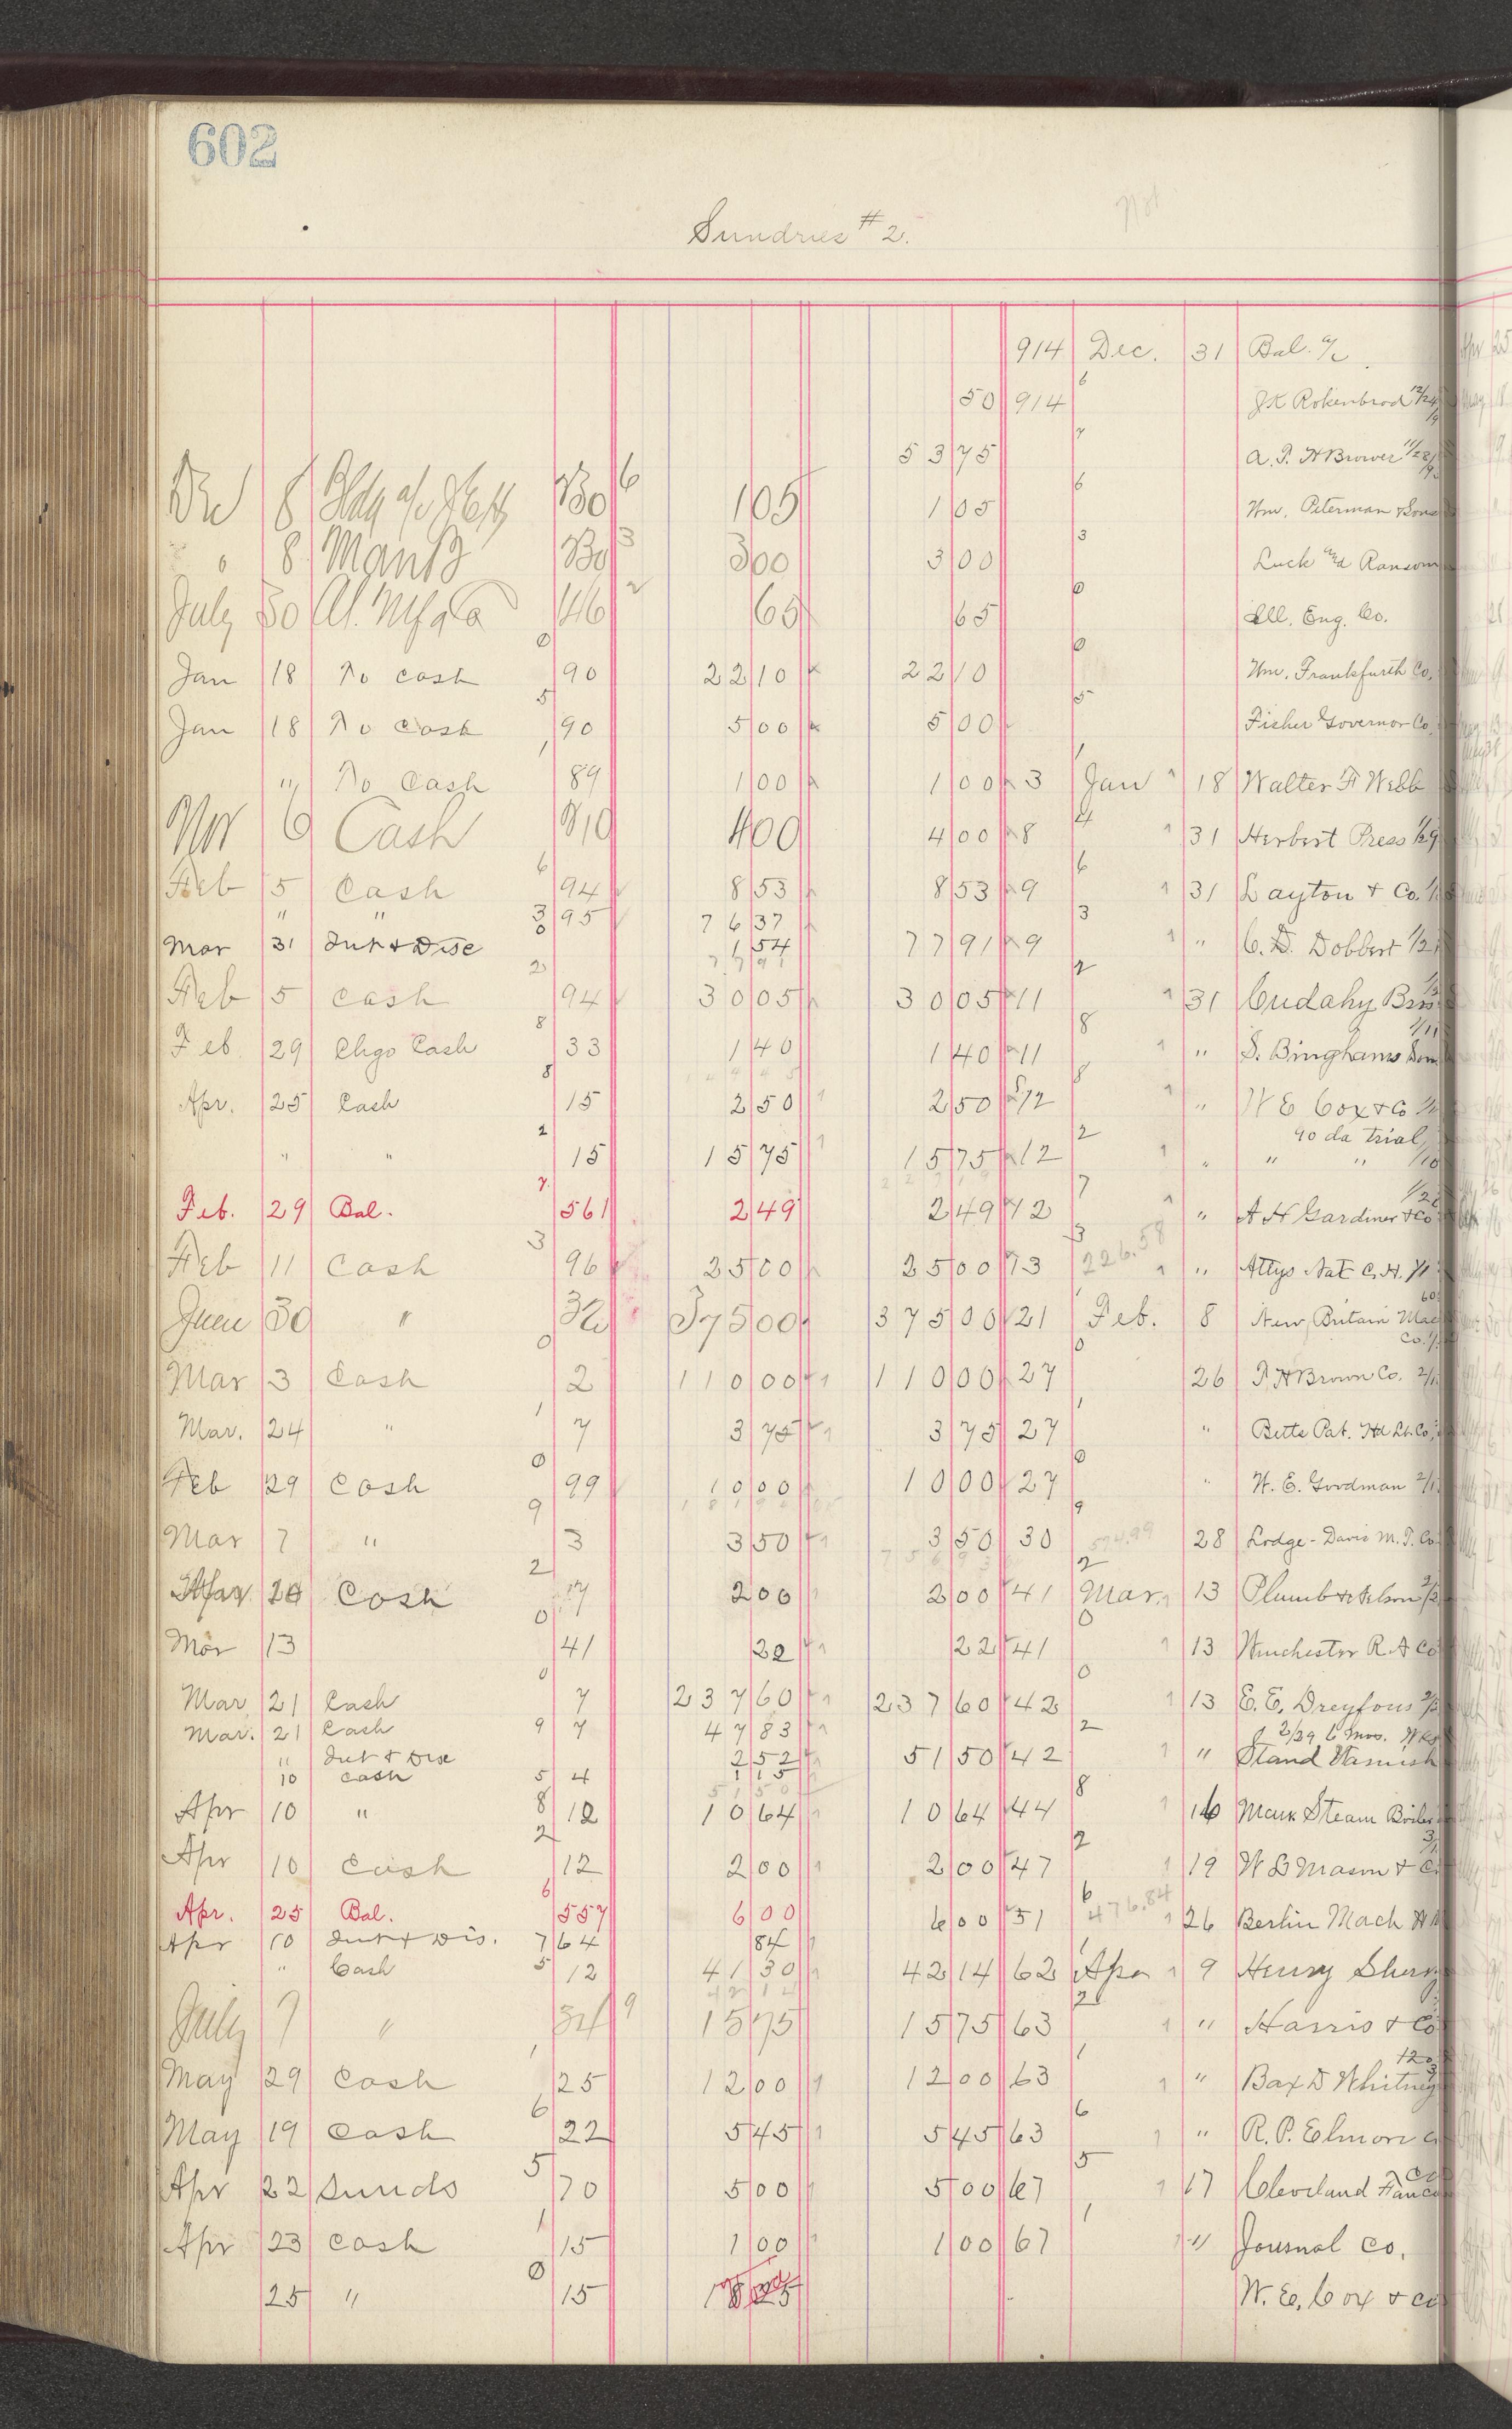 602
Sundries #2.
914 Dec. 31 Bal. a/c
50 914 6 J K Rokenbrod 12/24
7 53 75 A. P. H Brower 11/23
8 Bldg a/c 6 105 1 05 6 Wm. Peterman & Sons
" 8 3 300 3 00 3 Luck and Ransom
July 30 146 2 65 65 0 Ill. Eng. Co.
Jan 18 To Cash 0 90 22 10 22 10 0 Wm. Frankfurth Co.
Jan 18 To Cash 5 90 5 00 5 00 5 Fisher Governor Co.
" To Cash 1 89 1 00 1 00 3 Jan 1 18 Walter F Webb
6 Cash 400 4 00 8 4 31 Herbert Press 1/29
Feb 5 Cash 6 94 8 53 8 53 9 6 31 Layton & Co.
" " 3 95 76 37
Mar 31 Int & Disc 0 1 54 77 91 9 3 " C. D. Dobbert 1/21
Feb 5 Cash 2 94 30 05 30 05 11 2 31 Cudahy Bros
Feb 29 Chgo Cash 8 33 1 40 1 40 11 8 " S. Binghams Son 1/11
Apr. 25 Cash 8 15 2 50 2 50 12 8 " W E Cox & Co
90 da trial
" " 2 15 15 75 15 75 12 2 " " " 1/10
Feb. 29 Bal. 7 561 2 49 2 49 12 7 " A H Gardiner & Co
Feb 11 Cash 3 96 25 00 25 00 13 3 226.58 " Attys Nat C. H.
June 30 " 32 375 00 375 00 21 1 Feb. 8 New Britain Mac Co.
Mar 3 Cash 0 2 110 00 110 00 27 0 26 P H Brown Co.
Mar. 24 " 1 7 3 75 3 75 27 1 " Betts Pat. Hd Lt. Co.
Feb 29 Cash 0 99 10 00 10 00 27 0 " W. E. Goodman
Mar 7 " 9 3 3 50 3 50 30 9 574.99 28 Lodge-Davis M. T. Co
Cash 2 17 2 00 2 00 41 2 Mar. 13 Plumb & Nelson
Mar 13 0 41 22 22 41 0 13 Winchester R. A Co
Mar 21 Cash 0 7 237 60 237 60 42 0 13 E. E. Dreyfous
2/29 6 mos.
Mar. 21 Cash 9 7 47 83
" Int & Disc 2 52 51 50 42 2 " Stand Varnish
10 Cash 5 4 1 15
Apr 10 " 8 12 10 64 10 64 44 8 16 Steam Boiler
Apr 10 Cash 2 12 2 00 2 00 47 2 19 W B Mason & Co
Apr. 25 Bal. 6 557 6 00 6 00 51 6 476.84 26 Berlin Mach
Apr 10 Int & Dis. 7 64 84
" Cash 5 12 41 30 42 14 62 1 Apr 9 Henry Sherry
July 7 " 34 9 15 75 15 75 63 2 " Harris & Co
May 29 Cash 1 25 12 00 12 00 63 1 " Bax D Whitney
May 19 Cash 6 22 5 45 5 45 63 6 " R. P. Elmore
Apr 22 Sunds 5 70 5 00 5 00 67 5 17 Cleveland
Apr 23 Cash 1 15 1 00 1 00 67 1 " Journal Co.
25 " 0 15 W. E. Cox & Co